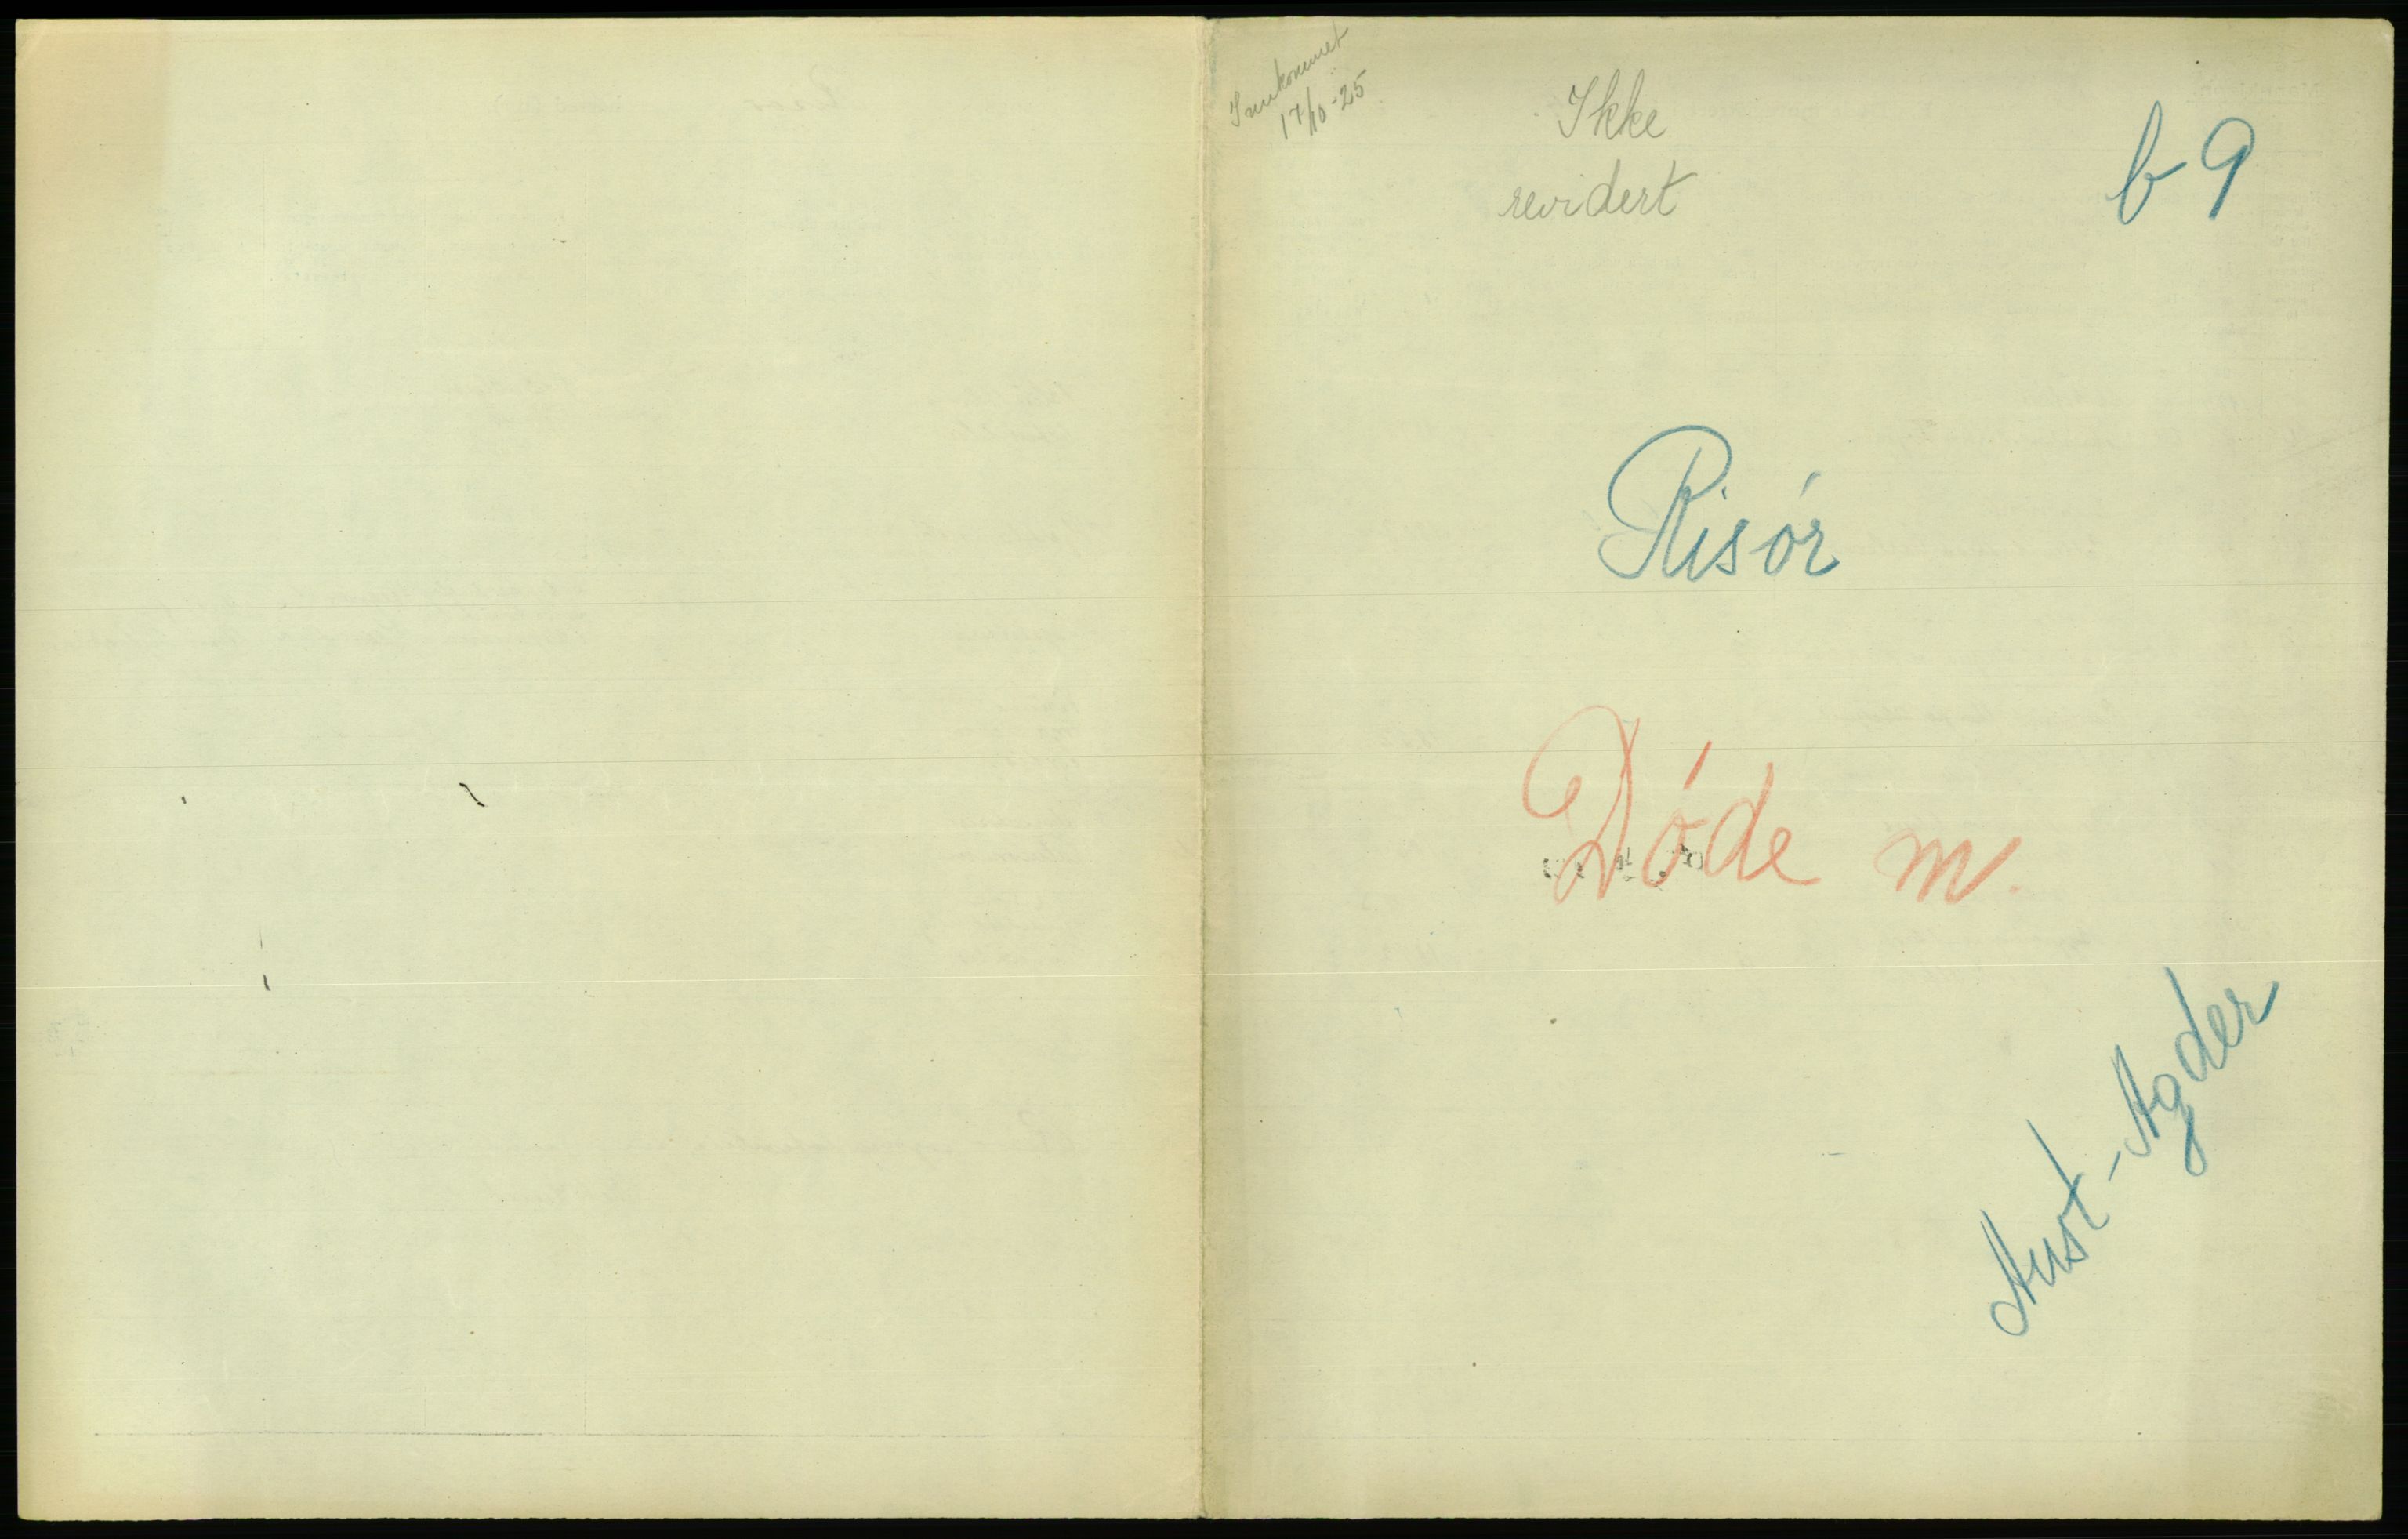 Innkommet
17/10-25
Ikke
revidert
b 9
Risór
Dóde m.
Aust-Agder